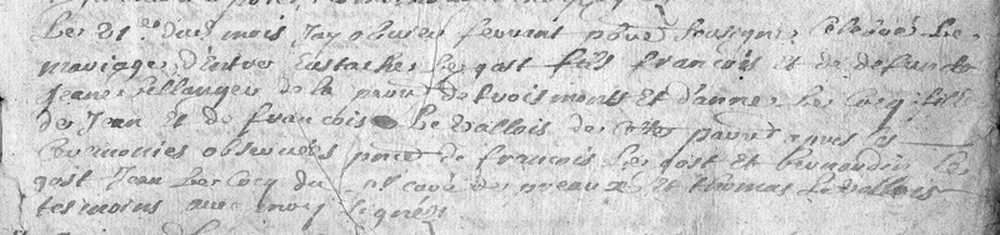 Le 21e dud mois Jay olivier ferrant soussigné celebré le
mariage d'entre Eustache le gost fils françois et de defuncte
Jeane bellanger de la parr de trois monts et d'anne le Cocq fille
de Jean et de françoise le vallois de parr apres les
Ceremonies observées de françois le gost et bernardin le
gost Jean le Cocq du de preaux et thomas le vallois
tesmoins avec moy signés